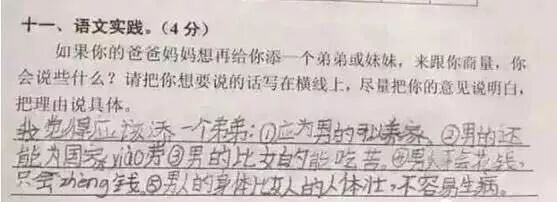 十一、语文实践。(4分)
如果你的爸爸妈妈想再给你添一个弟弟或妹妹，来跟你商量，你
会说些什么？请把你想要说的话写在横线上，尽量把你的意见说明白，
把理由说具体。
我觉得应该添一个弟弟：①应为男的可以养家 ②男的还
能为国家yiào劳③男的比女的能吃苦。④男人不会花钱，
只会zhèng钱。⑤男人的身体比女人的人体壮，不容易生病。